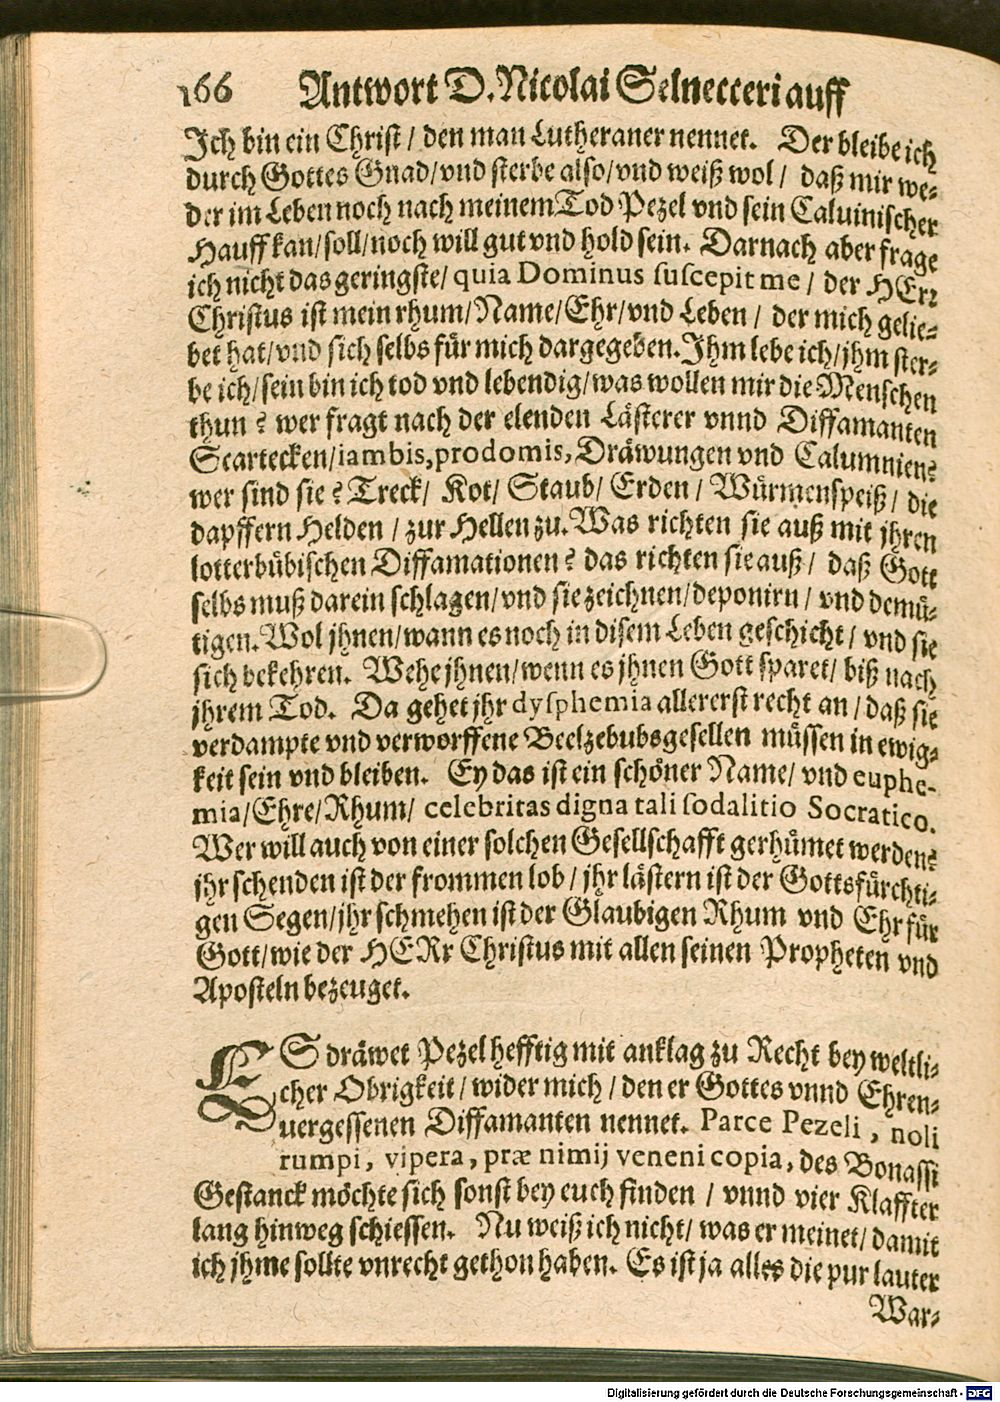 166 Antwort D. Nicolai Selnecceri auff
Ich bin ein Christ / den man Lutheraner nennet. Der bleibe ich
durch Gottes Gnad/vnd sterbe also/vnd weiß wol / daß mir we-
der im Leben noch nach meinem Tod Pezel vnd sein Caluinischer
Hauff kan/soll/noch will gut vnd hold sein. Darnach aber frage
ich nicht das geringste/ quia Dominus suscepit me / der HErr
Christus ist mein rhum/Name/Ehr/vnd Leben / der mich gelie-
bet hat/vnd sich selbs für mich dargegeben. Ihm lebe ich/jhm ster-
be ich/sein bin ich tod vnd lebendig/was wollen mir die Menschen
thun? wer fragt nach der elenden Lästerer vnnd Diffamanten
Scartecken/iambis, prodomis, Dräwungen vnd Calumnien?
wer sind sie? Treck/ Kot/ Staub/ Erden / Würmenspeiß / die
dapffern Helden / zur Hellen zu. Was richten sie auß mit jhren
lotterbübischen Diffamationen? das richten sie auß / daß Gott
selbs muß darein schlagen/vnd sie zeichnen/deponirn / vnd demü-
tigen. Wol jhnen/wann es noch in disem Leben geschicht / vnd sie
sich bekehren. Wehe jhnen/wenn es jhnen Gott sparet/ biß nach
jhrem Tod. Da gehet jhr dysphemia allererst recht an / daß sie
verdampte vnd verworffene Beelzebubsgesellen müssen in ewig-
keit sein vnd bleiben. Ey das ist ein schöner Name/ vnd euphe-
mia/Ehre/Rhum/ celebritas digna tali sodalitio Socratico.
Wer will auch von einer solchen Gesellschafft gerhümet werden?
jhr schenden ist der frommen lob / jhr lästern ist der Gottsfürchti-
gen Segen/jhr schmehen ist der Glaubigen Rhum vnd Ehr für
Gott/wie der HERr Christus mit allen seinen Propheten vnd
Aposteln bezeuget.
ES dräwet Pezel hefftig mit anklag zu Recht bey weltli-
cher Obrigkeit / wider mich / den er Gottes vnnd Ehren-
uergessenen Diffamanten nennet. Parce Pezeli, noli
rumpi, vipera, præ nimij veneni copia, des Bonassi
Gestanck möchte sich sonst bey euch finden / vnnd vier Klaffter
lang hinweg schiessen. Nu weiß ich nicht/ was er meinet/ damit
ich jhme sollte vnrecht gethon haben. Es ist ja alles die pur lauter
War-
Digitalisierung gefördert durch die Deutsche Forschungsgemeinschaft - DFG